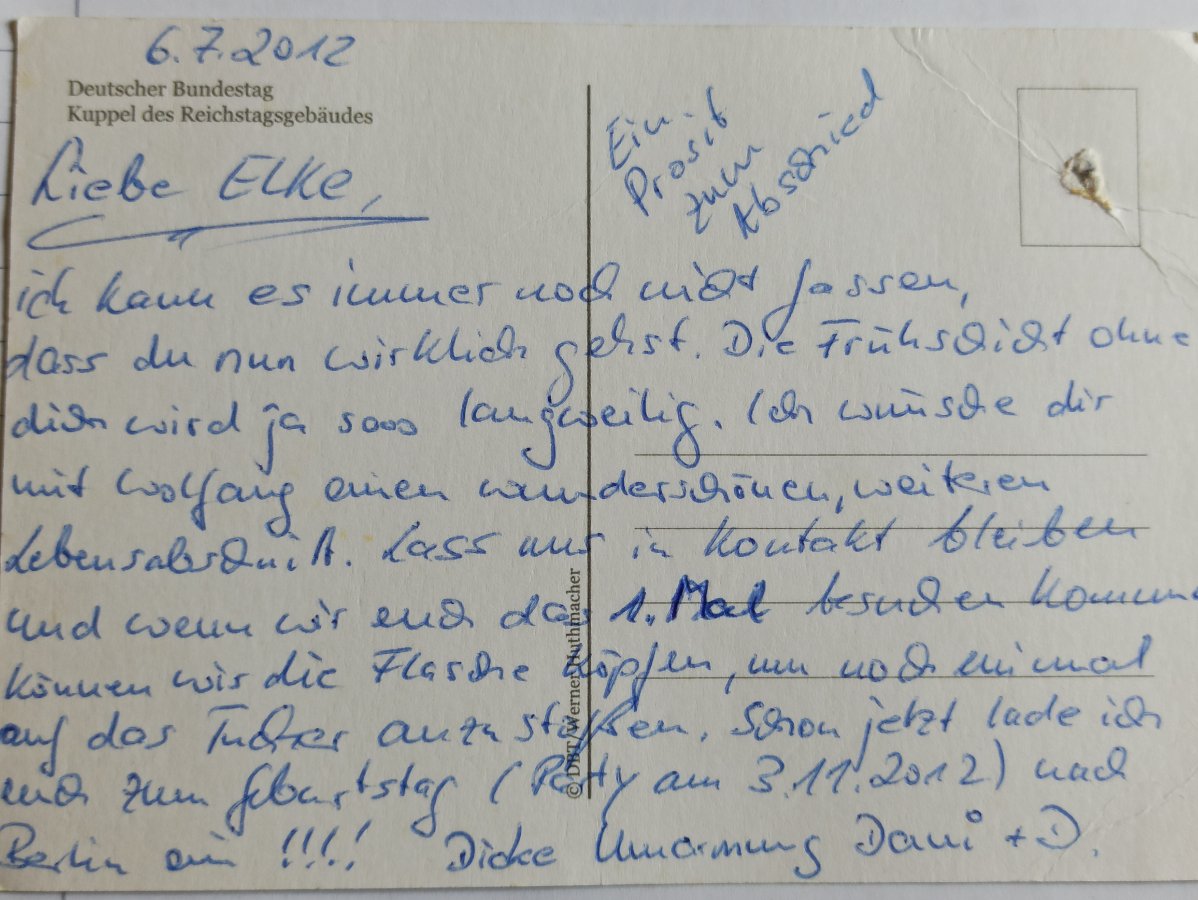 6.7.2012
Deutscher Bundestag
Kuppel des Reichstagsgebäudes
Ein
Prosit
zum
Abschied
Liebe Elke,
ich kann es immer noch nicht fassen,
dass du nun wirklich gehst. Die Frühschicht ohne
dich wird ja sooo langweilig. Ich wünsche dir
mit Wolfgang einen wunderschönen, weiteren
Lebensabschnitt. Lass uns in Kontakt bleiben
und wenn wir euch das 1. Mal besuchen kommen
können wir die Flasche köpfen, um noch einmal
auf das Tucher anzustoßen. Schon jetzt lade ich
euch zum Geburtstag (Party am 3.11.2012) nach
Berlin ein !!!! Dicke Umarmung Dani + D.
© DBT/Werner Huthmacher